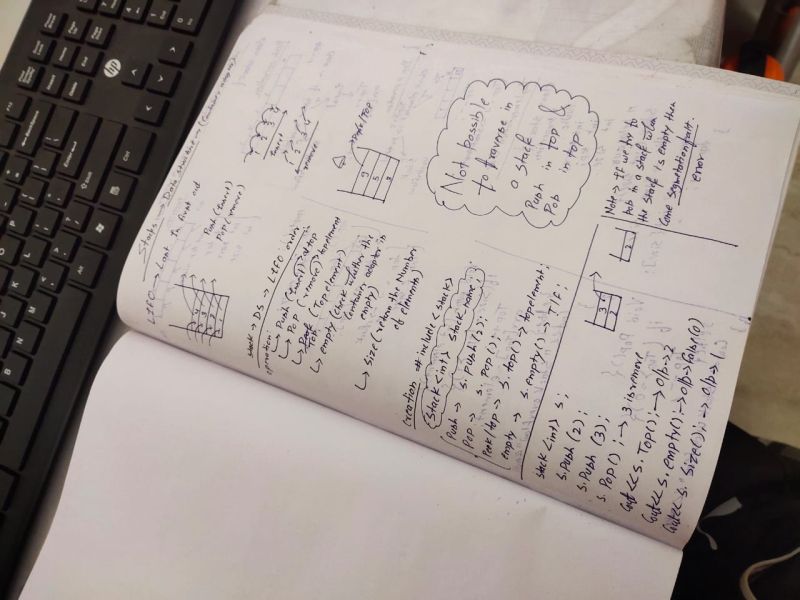 Stacks → Data structure → (Container adaptor)
LIFO → Last In First out
Push (insert)
Pop (remove)
insert
remove
stack → DS → LIFO order
operation:
↳ Push (insert) at top
↳ Pop (remove) topelement
↳ Peek (Top element)
Top
↳ empty (check whether the
container adaptor is
empty)
↳ Size (return the Number
of elements)
peek/TOP
9
5
3
Creation # include <stack>
{Stack <int> Stack_name;}
Push → s.push(2);
Pop → s.pop();
Peek/top → s.top() → topelement;
empty → s.empty() → T/F;
Not possible
to traverse in
a stack
Push in top &
Pop in top
stack <int> s;
s.push (2);
s.push (3);
s.pop(); → 3 is remove
Cout << s.Top(); → o/p → 2
Cout << s.empty(); → o/p → false(0)
Cout << s.Size(); → o/p → 1
3
2
2
Note → If we try to
pop in a stack when
the stack is empty then
Come segmetation fault
error
hp
Ctrl
Alt